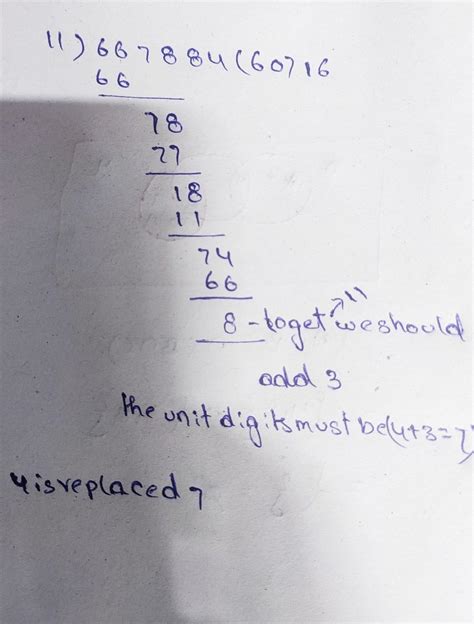 11) 667884 ( 60716
66
78
77
18
11
74
66
8 - to get 11 we should
add 3
the unit digits must be (4+3=7)
4 is replaced 7